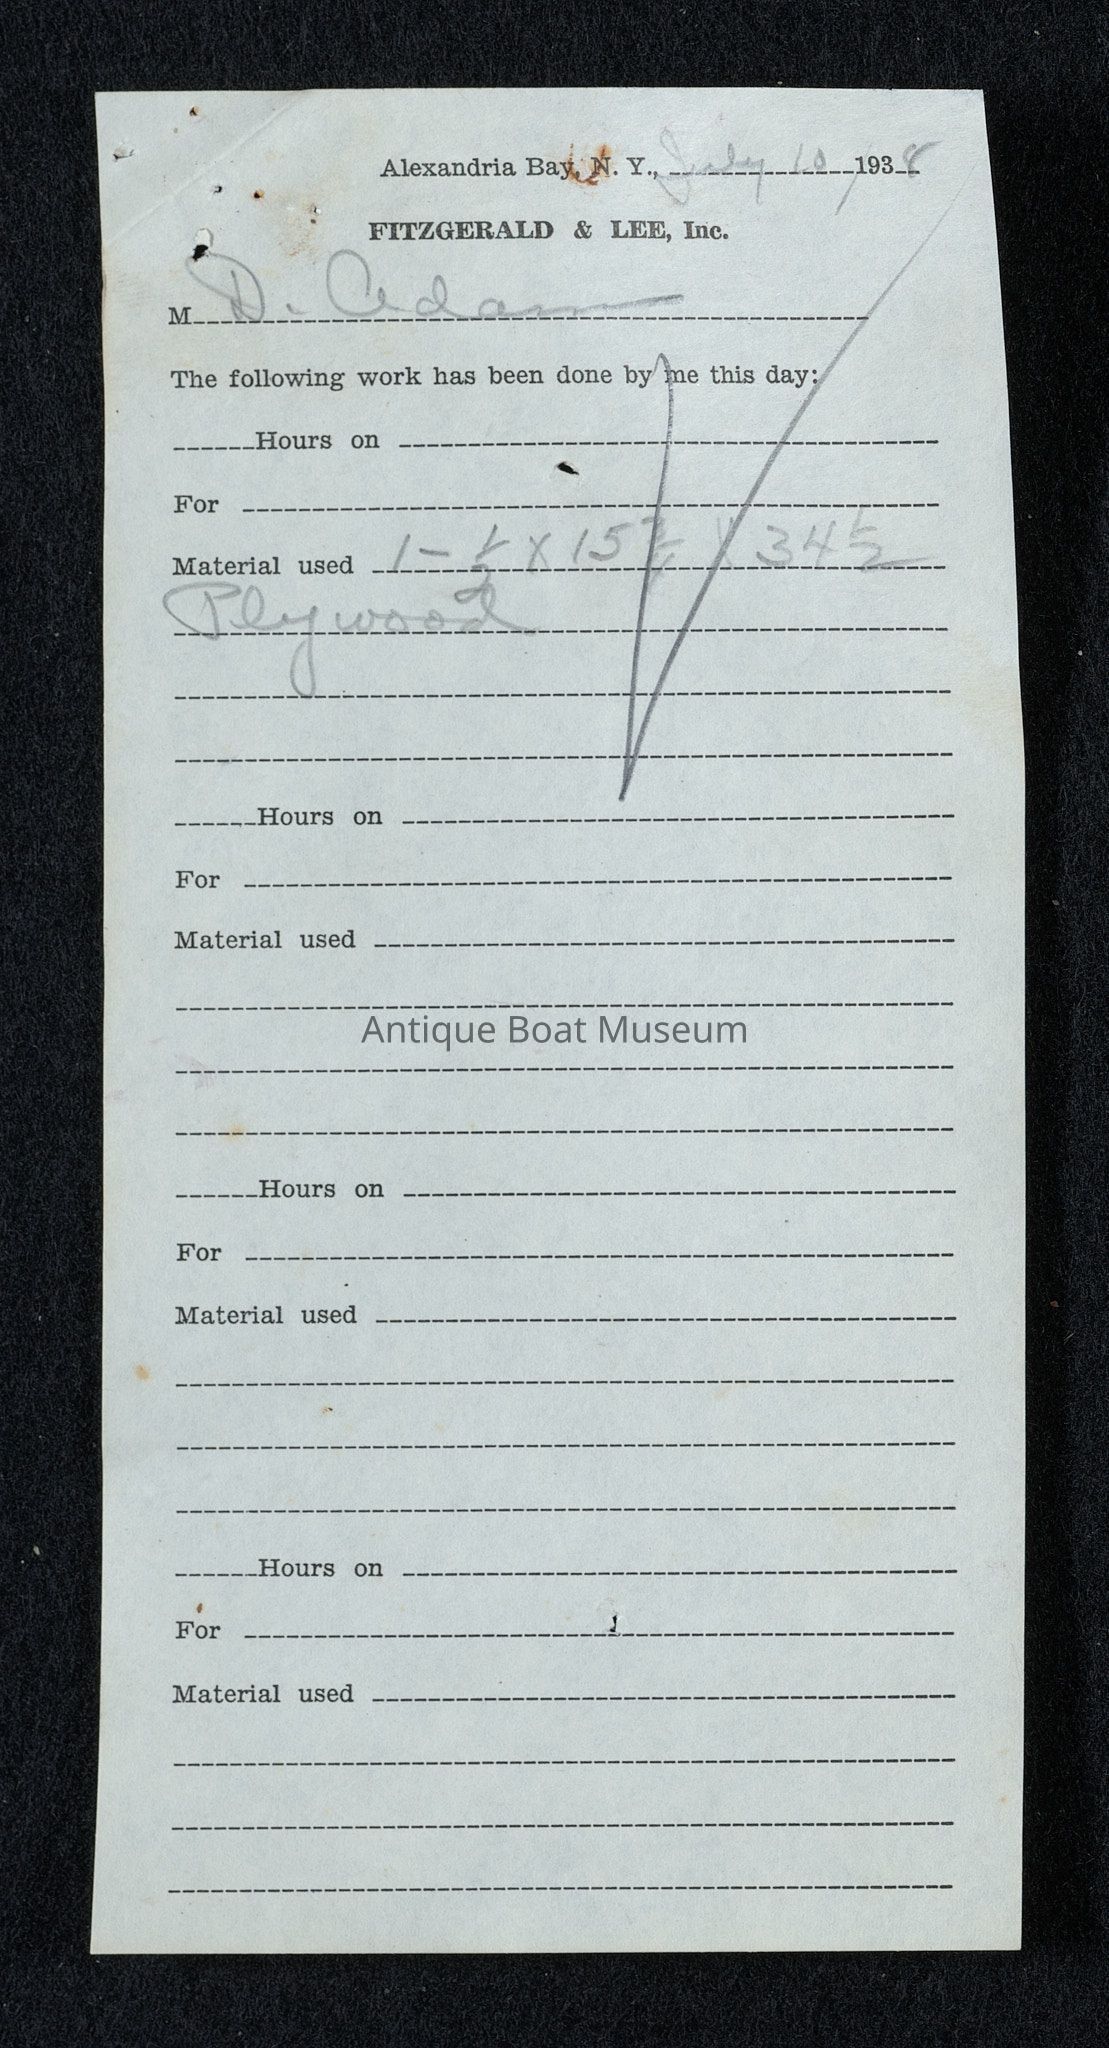 Alexandria Bay, N. Y., July 10, 1938
FITZGERALD & LEE, Inc.
M D. Adams
The following work has been done by me this day:
Hours on
For
Material used 1 - 1/2 X 15 3/4 X 34 1/2
Plywood
Hours on
For
Material used
Antique Boat Museum
Hours on
For
Material used
Hours on
For
Material used